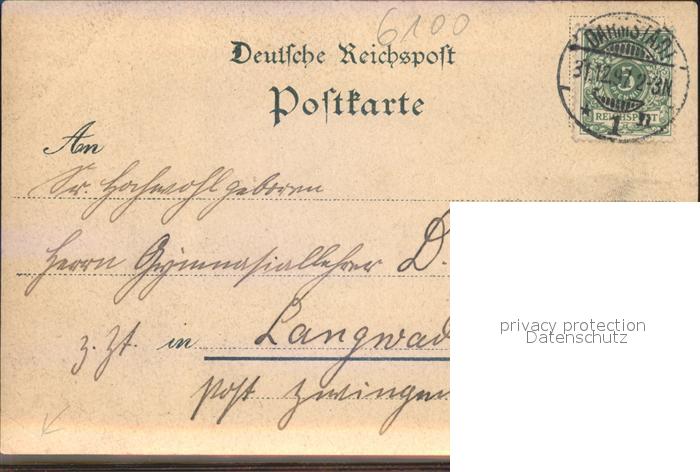 6100
Deutsche Reichspost
Postkarte
DARMSTADT
31.12.97. 2-3N
* 1 n
5
REICHSPOST
An
Sr. Hochwohlgeboren
Herrn Gymnasiallehrer D.
z. Zt. in Langwad
Post Zwingen
privacy protection
Datenschutz